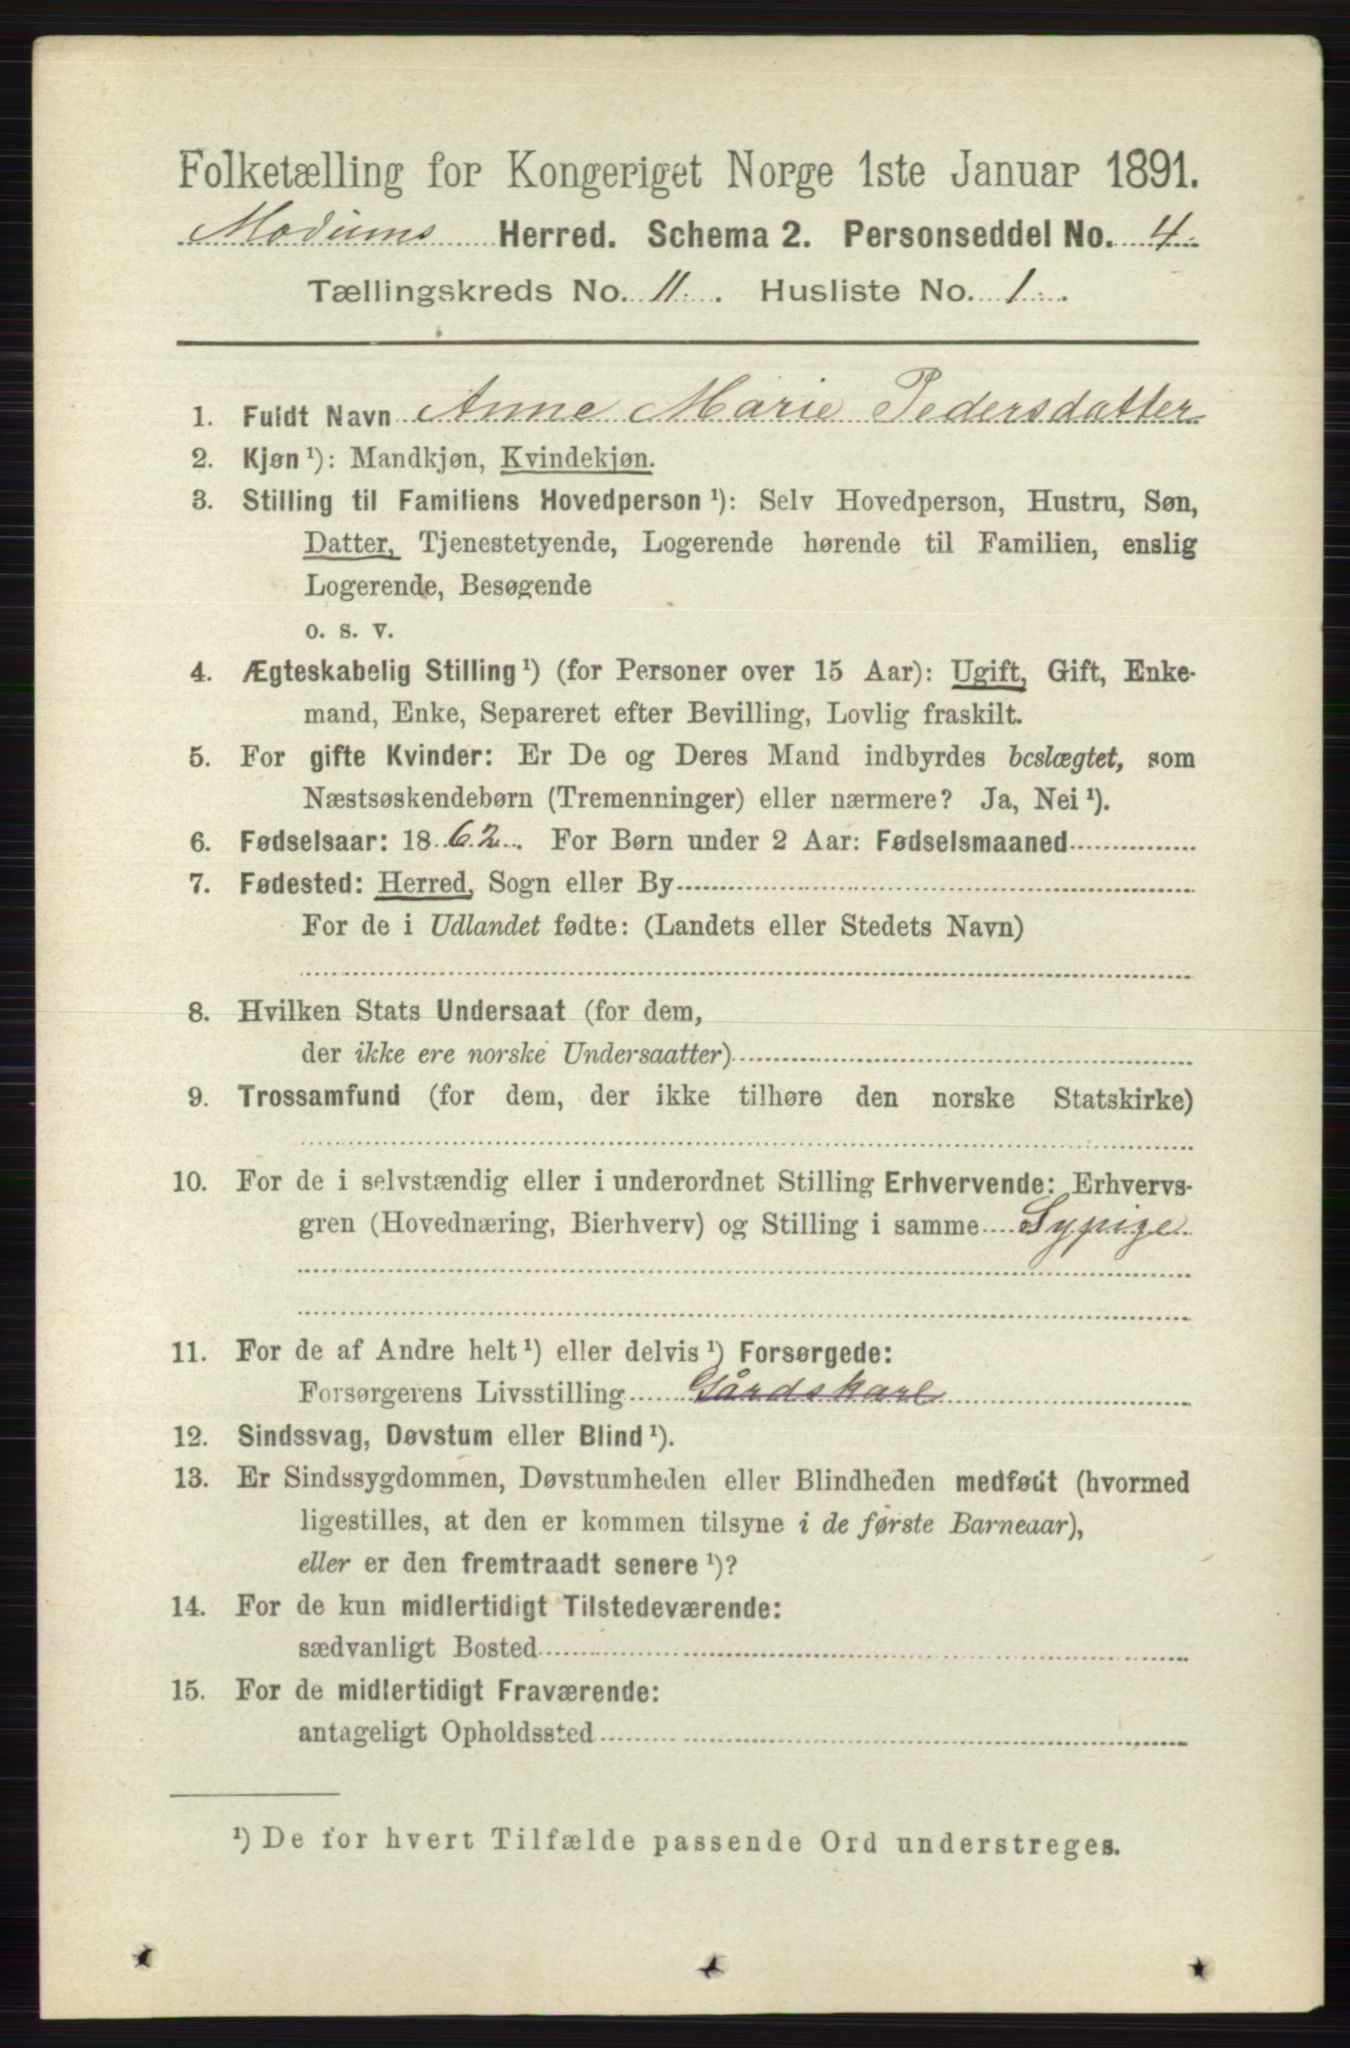 Folketælling for Kongeriget Norge 1ste Januar 1891.
Modums Herred. Schema 2. Personseddel No. 4
Tællingskreds No. 11. Husliste No. 1.
1. Fuldt Navn Anne Marie Pedersdatter
2. Kjøn ¹): Mandkjøn, Kvindekjøn.
3. Stilling til Familiens Hovedperson ¹): Selv Hovedperson, Hustru, Søn,
Datter, Tjenestetyende, Logerende hørende til Familien, enslig
Logerende, Besøgende
o. s. v.
4. Ægteskabelig Stilling ¹) (for Personer over 15 Aar): Ugift, Gift, Enke-
mand, Enke, Separeret efter Bevilling, Lovlig fraskilt.
5. For gifte Kvinder: Er De og Deres Mand indbyrdes beslægtet, som
Næstsøskendebørn (Tremenninger) eller nærmere? Ja, Nei ¹).
6. Fødselsaar: 1862. For Børn under 2 Aar: Fødselsmaaned
7. Fødested: Herred, Sogn eller By
For de i Udlandet fødte: (Landets eller Stedets Navn)
8. Hvilken Stats Undersaat (for dem,
der ikke ere norske Undersaatter)
9. Trossamfund (for dem, der ikke tilhøre den norske Statskirke)
10. For de i selvstændig eller i underordnet Stilling Erhvervende: Erhvervs-
gren (Hovednæring, Bierhverv) og Stilling i samme Sypige
11. For de af Andre helt ¹) eller delvis ¹) Forsørgede:
Forsørgerens Livsstilling Gårdskarl
12. Sindssvag, Døvstum eller Blind ¹).
13. Er Sindssygdommen, Døvstumheden eller Blindheden medfødt (hvormed
ligestilles, at den er kommen tilsyne i de første Barneaar),
eller er den fremtraadt senere ¹)?
14. For de kun midlertidigt Tilstedeværende:
sædvanligt Bosted
15. For de midlertidigt Fraværende:
antageligt Opholdssted
¹) De for hvert Tilfælde passende Ord understreges.